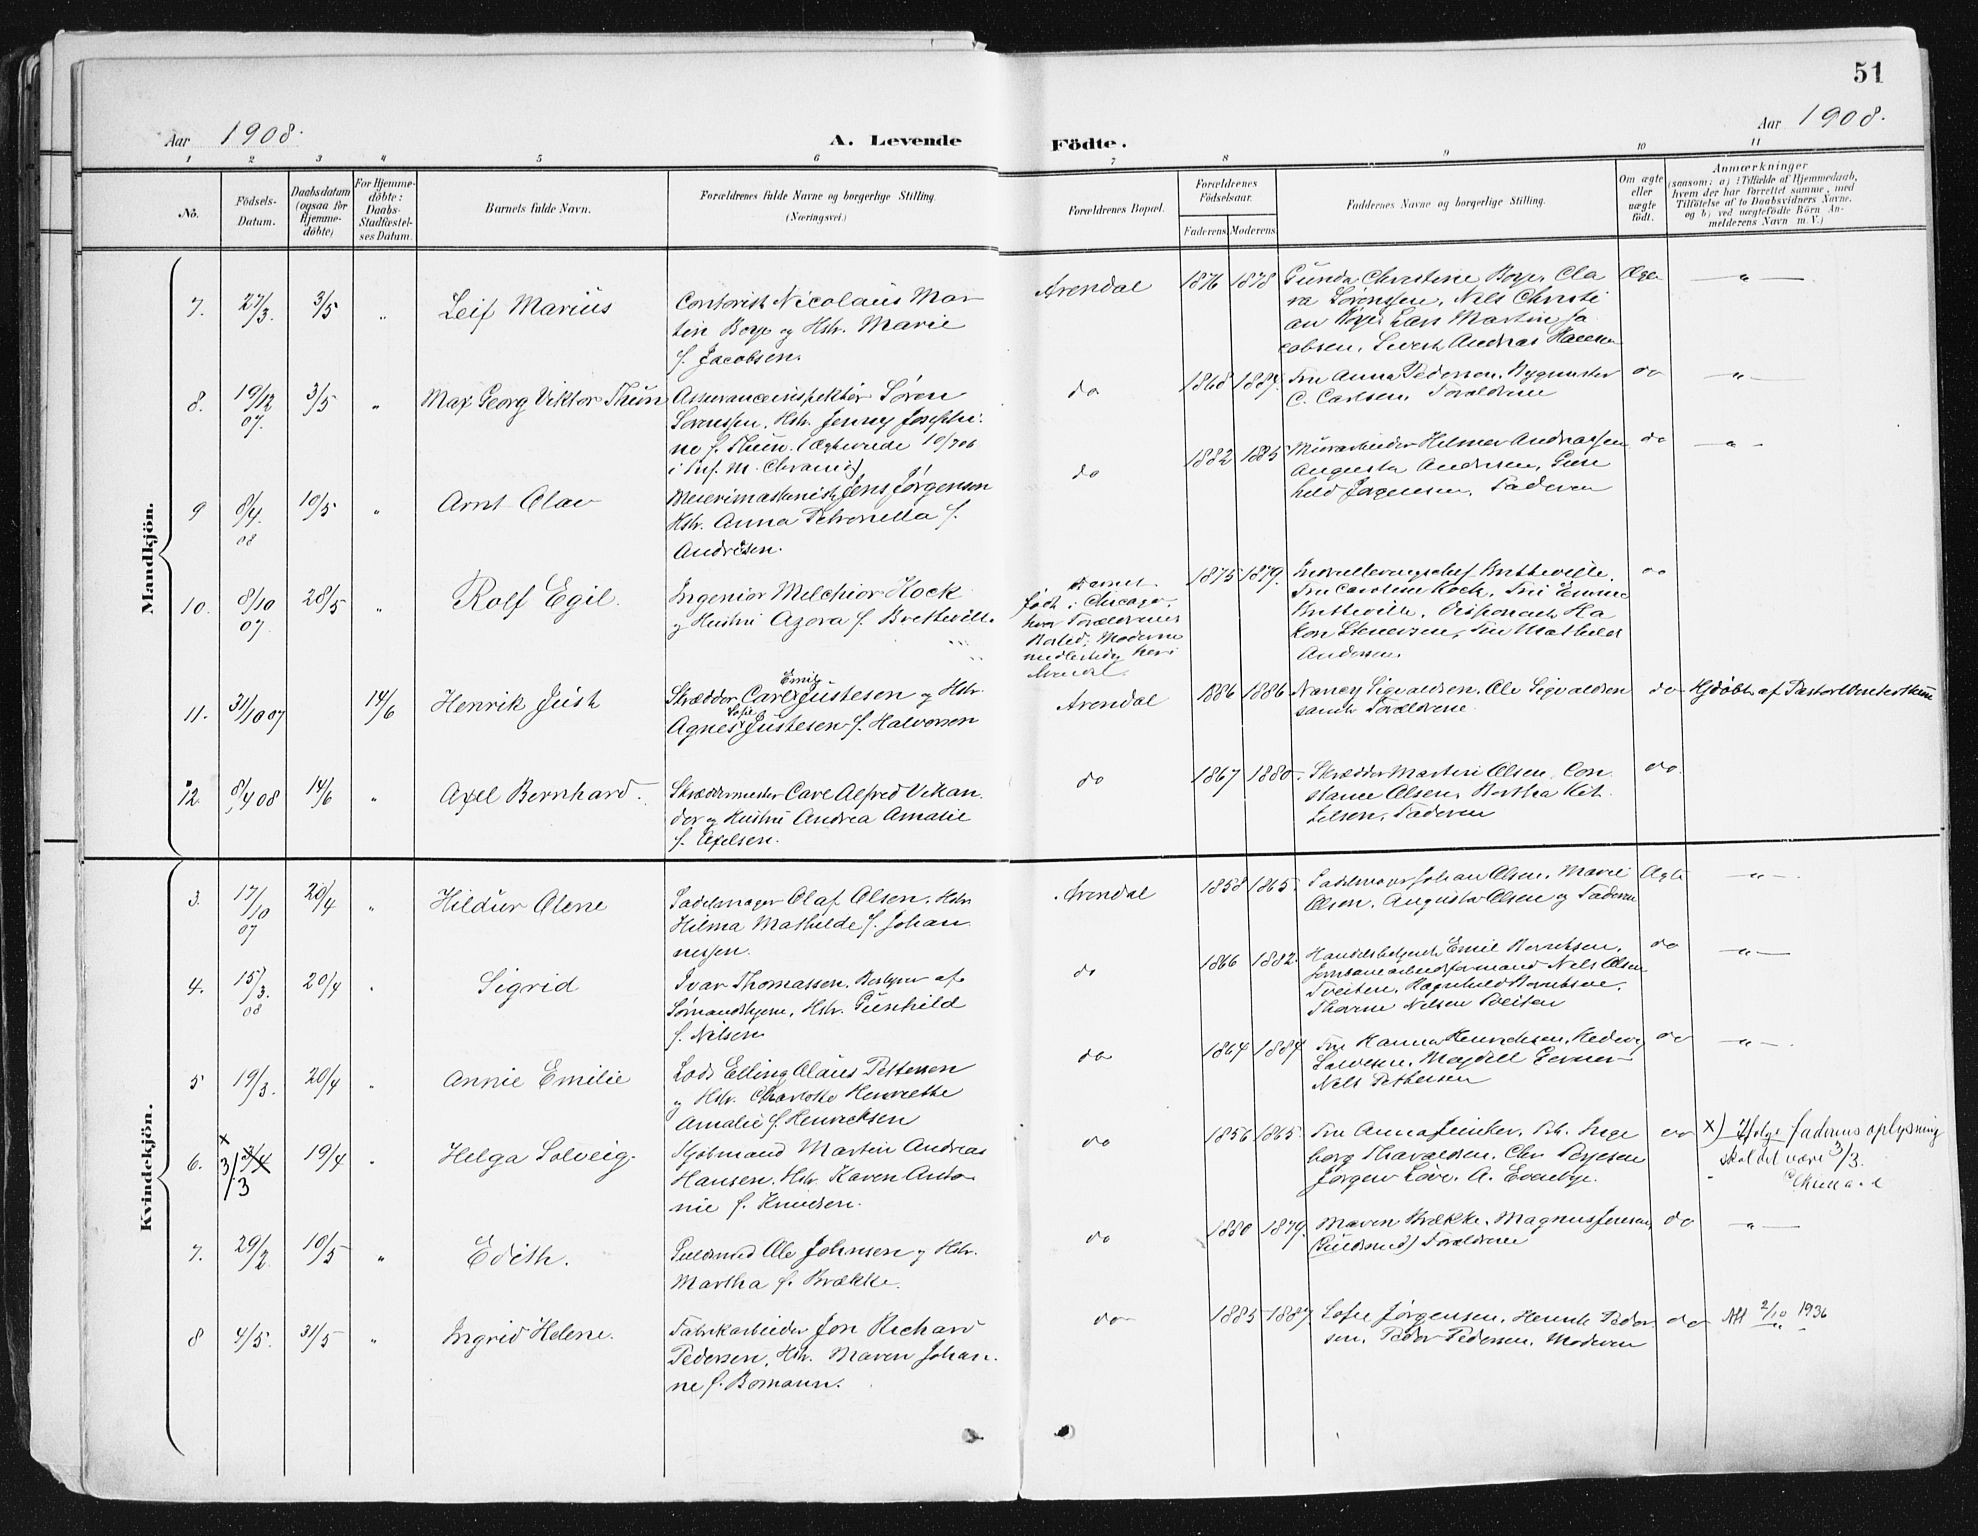 51
Aar 1908.
A. Levende Födte.
Aar 1908.
1 2 3 4 5 6 7 8 9 10 11
No.
Födsels-Datum.
Daabsdatum (ogsaa for Hjemme-döbte)
For Hjemme-döbte: Daabs-Stadfæstel-ses Datum.
Barnets fulde Navn.
Forældrenes fulde Navne og borgerlige Stilling.
(Næringsvei.)
Forældrenes Bopæl.
Forældrenes Födselsaar.
Faderens Moderens
Faddernes Navne og borgerlige Stilling.
Om ægte eller uægte födt.
Anmærkninger
(saasom: a) i Tilfælde af Hjemmedaab,
hvem der har forrettet samme, med
Tilföielse af to Daabsvidners Navne.
og b) ved uægtefödte Börn An-
melderens Navn m. V.)
Mandkjön.
7. 27/3. 3/5 " Leif Marius
Contorist Nicolaus Mar
tin Boye og Hstr. Marie
f. Jacobsen.
Arendal 1876 1878
Gunda Christine Boye, Cla
ra Sörenssen, Nils Christi
an Boye, Lars Martin Ja
cobsen, Sivert Andreas Hansen
Ægte —"—
8. 19/12 07. 3/5 " Max Georg Viktor Thun
Assuranceinspektör Sören
Sörenssen, Hstr. Jenny Josephi:
ne f. Thun. (Ægteviede 10/7 06
i
do 1868 1884.
Fru Anna Pedersen, Bygmester
C. Carlsen, Forældrene
do —"—
9 8/4. 08 10/5 " Arnt Olav
Meierimaskinist Jens Jörgensen
Hstr. Anna Petronella f.
Andresen.
do 1882 1885
Murarbeider Hilmer Andreassen
Augusta Andersen, Gun
hild Jörgensen, Faderen
do —"—
10. 8/10 07. 28/5 " Rolf Egil.
Ingeniör Melchior Kock
og Hustru Azora f. Bretteville.
Barnet
födt i Chicago,
hvor Forældrenes
Bosted. Moderen
midlertidig her i
Arendal.
1875 1879.
Bretteville.
Fru Caroline Kock, Fru Emma
Bretteville, Disponent Ha
kon Stenersen, Fru Mathilde
Andersen.
do
11. 31/10 07 14/6 Henrik Just
Emig
Skrædder Carl Justesen og Hstr.
Sofie
Agnes Justesen f. Halvorsen
Arendal 1886 1886
Nancy Sigvaldsen, Ole Sigvaldsen
samt Forældrene
do Hjdöbt af Pastor
12. 8/4 08 14/6 " Axel Bernhard.
Skræddermester Carl Alfred Vikan
der og Hustru Andrea Amalie
f. Axelsen.
do 1867 1880.
Skrædder Martin Olsen, Con
stance Olsen, Bertha Kit
telsen, Faderen
do.
Kvindekjön.
3. 17/10 07 20/4 " Hildur Olene
Sadelmager Olaf Olsen, Hstr.
Hilma Mathilde f. Johan
nessen.
Arendal 1858 1865.
Sadelmager Johan Olsen, Marie
Olsen, Augusta Olsen og Faderen
Ægte —"—
4. 15/3. 08 20/4 " Sigrid
Ivar Thomassen, Bestyrer af
Sömandshjem, Hstr. Gunhild
f. Nilsen
do 1866 1882.
Handelsbetjent Emil Berntsen,
Jernbanearbeidsformand Nils Olsen
Tveiten, Ragnhild Berntsen,
Thorine Nilsen Tveiten
do —"—
5 19/3. 20/4 " Annie Emilie
Lods Elling Olaus Pettersen
og Hstr. Charlotte Henriette
Amalie f. Henricksen
do 1864 1884
Fru Hanna Henrichsen, Hedevig
Salvesen, Magdell Gerner
Nils Pettersen
do —"—.
6. x 3/4 3/3 19/4 " Helga Solveig.
Styrmand Martin Andreas
Hansen, Hstr. Karen Anto
nie f. Knudsen.
do 1856 1865.
Fru Anna Jencker, Frk. Inge
borg Tharaldsen, Chr Terjesen
Jörgen Löve, A. Evenbye.
do x) Ifölge faderens oplysning
skal det være 3/3.
7. 29/2. 10/5 " Edith.
Guldsmed Ole Johnsen og Hstr.
Martha f. Brække.
do 1880 1879.
Maren Brække, Magnus Jensen
(Guldsmed) Forældrene
do —"—
8 4/5. 31/5 " Ingrid Helene.
Fabrikarbeider Jon Richard
Pedersen, Hstr. Maren Johan.
ne f. Bomann.
do 1885 1887
Sofie Jörgensen, Henrik Peder
sen, Peder Pedersen, Moderen
do Att 2/10 1936